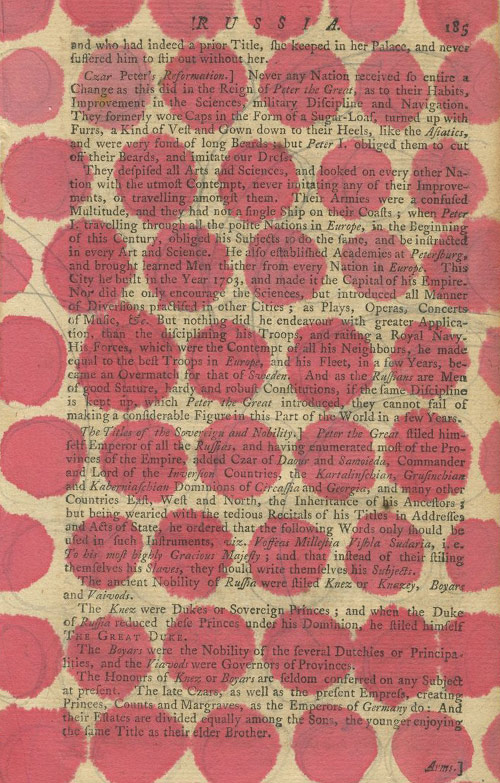 RUSSIA. 185
and who had indeed a prior Title, ſhe keeped in her Palace, and never
ſuffered him to ſtir out without her.
Czar Peter's Reformation.] Never any Nation received ſo entire a
Change as this did in the Reign of Peter the Great, as to their Habits,
Improvement in the Sciences, military Diſcipline and Navigation.
They formerly wore Caps in the Form of a Sugar-Loaf, turned up with
Furrs, a Kind of Veſt and Gown down to their Heels, like the Aſiatics,
and were very fond of long Beards; but Peter I. obliged them to cut
off their Beards, and imitate our Dreſs.
They deſpiſed all Arts and Sciences, and looked on every other Na-
tion with the utmoſt Contempt, never imitating any of their Improve-
ments, or travelling amongſt them. Their Armies were a confuſed
Multitude, and they had not a ſingle Ship on their Coaſts; when Peter
I. travelling through all the polite Nations in Europe, in the Beginning
of this Century, obliged his Subjects to do the ſame, and be inſtructed
in every Art and Science. He alſo eſtabliſhed Academies at Peterſburg,
and brought learned Men thither from every Nation in Europe. This
City he built in the Year 1703, and made it the Capital of his Empire.
Nor did he only encourage the Sciences, but introduced all Manner
of Diverſions practiſed in other Cities; as Plays, Operas, Concerts
of Muſic, &c. But nothing did he endeavour with greater Applica-
tion, than the diſciplining his Troops, and raiſing a Royal Navy.
His Forces, which were the Contempt of all his Neighbours, he made
equal to the beſt Troops in Europe, and his Fleet, in a few Years, be-
came an Overmatch for that of Sweden. And as the Ruſſians are Men
of good Stature, hardy and robuſt Conſtitutions, if the ſame Diſcipline
is kept up, which Peter the Great introduced, they cannot fail of
making a conſiderable Figure in this Part of the World in a few Years.
The Titles of the Sovereign and Nobility.] Peter the Great ſtiled him-
ſelf Emperor of all the Ruſſies, and having enumerated moſt of the Pro-
vinces of the Empire, added Czar of Daour and Samoieda, Commander
and Lord of the Inverſion Countries, the Kartalinſchian, Gruſinchian
and Kaberniaſchian Dominions of Circaſſia and Georgia, and many other
Countries Eaſt, Weſt and North, the Inheritance of his Anceſtors;
but being wearied with the tedious Recitals of his Titles in Addreſſes
and Acts of State, he ordered that the following Words only ſhould be
uſed in ſuch Inſtruments, viz. Voſſeas Milleſtia Viſhla Sudaria, i. e.
To his moſt highly Gracious Majeſty; and that inſtead of their ſtiling
themſelves his Slaves, they ſhould write themſelves his Subjects.
The ancient Nobility of Ruſſia were ſtiled Knez or Knezey, Boyars
and Vaivods.
The Knez were Dukes or Sovereign Princes; and when the Duke
of Ruſſia reduced theſe Princes under his Dominion, he ſtiled himſelf
THE GREAT DUKE.
The Boyars were the Nobility of the ſeveral Dutchies or Principa-
lities, and the Vaivods were Governors of Provinces.
The Honours of Knez or Boyars are ſeldom conferred on any Subject
at preſent. The late Czars, as well as the preſent Empreſs, creating
Princes, Counts and Margraves, as the Emperors of Germany do: And
their Eſtates are divided equally among the Sons, the younger enjoying
the ſame Title as their elder Brother.
Arms.]